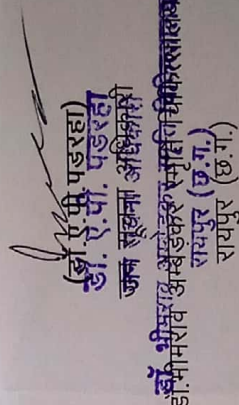 (डॉ ए.पी. पडरहा)
डॉ. ए.पी. पडरहा
जन सूचना अधिकारी
डॉ. भीमराव अम्बेडकर स्मृति चिकित्सालय
रायपुर (छ.ग.)
रायपुर (छ.ग.)